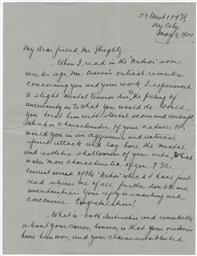 51 West 129 St
Ny City,
May 9, 1924
My dear friend, Mr
When I read in the "Nation" some
weeks ago, Mr. critical remarks
concerning you and your work, I experienced
a slight mental tension due to the feeling of
uncertainty as to what you would do. Would
you treat him with stoical scorn and contempt
(which is characteristic of your nature) or
would you in an aggressive and satirical
attack and lay bare the mental
and esthetic shallowness of your critic, (which
is also more characteristic of you)? The
current issue of the "Nation" which I have just
read relieves me of all further doubts and
uncertainties. Your reply is smashing and
conclusive. Congratulation!
What is both distinctive and remarkable
about your career, however, is that your victories
have been won, and your claims established